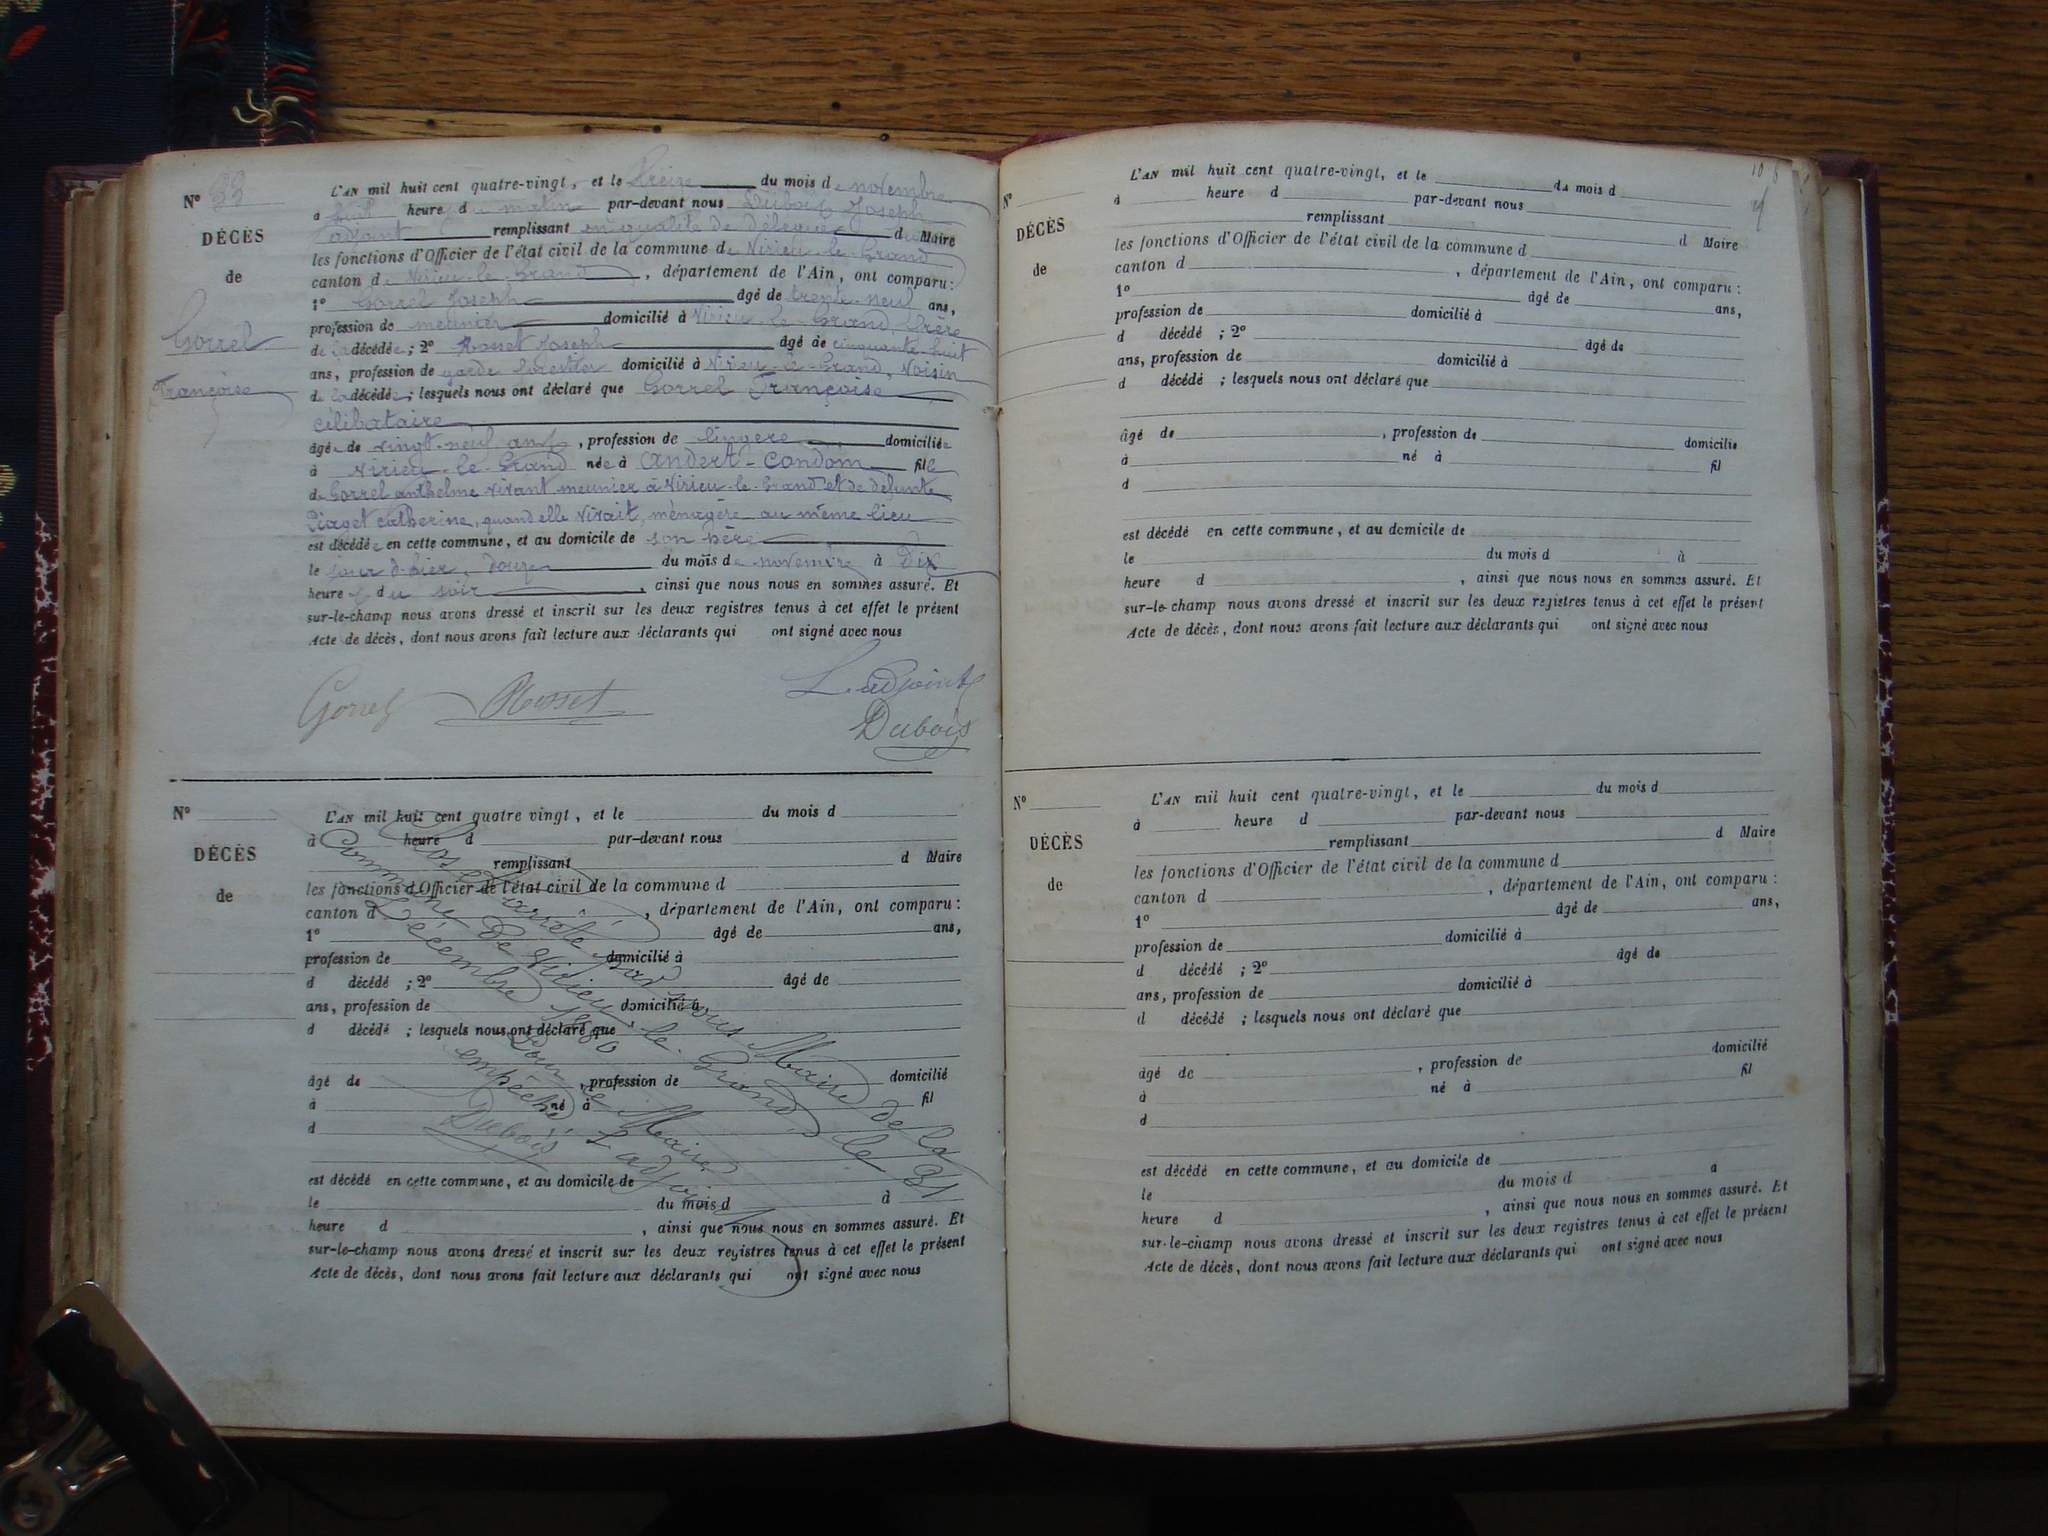 N° 33
DÉCÈS
de
Gorrel
Françoise
L'AN mil huit cent quatre-vingt, et le treize du mois de novembre
à huit heures du matin par-devant nous Dubois Joseph
adjoint remplissant en qualité de délégué du Maire
les fonctions d'Officier de l'état civil de la commune de Virieu-le-Grand
canton de Virieu-le-Grand, département de l'Ain, ont comparu :
1° Gorrel Joseph âgé de trente-neuf ans,
profession de meunier domicilié à Virieu-le-Grand, frère
de la décédée ; 2° Rosset Joseph âgé de cinquante-huit
ans, profession de garde forestier domicilié à Virieu-le-Grand, Voisin
de la décédée ; lesquels nous ont déclaré que Gorrel Françoise
célibataire
âgée de vingt-neuf ans, profession de lingère domiciliée
à Virieu-le-Grand née à Andert-Condom fille
de Gorrel anthelme vivant meunier à Virieu-le-Grand et de défunte
Piaget catherine, quand elle vivait, ménagère au même lieu
est décédée en cette commune, et au domicile de son père
le jour d'hier, douze du mois de novembre à Dix
heures du soir, ainsi que nous nous en sommes assuré. Et
sur-le-champ nous avons dressé et inscrit sur les deux registres tenus à cet effet le présent
Acte de décès, dont nous avons fait lecture aux déclarants qui ont signé avec nous
Gorrel Rosset L'adjoint
Dubois
N°
DÉCÈS
de
L'AN mil huit cent quatre vingt, et le du mois d
à heure d par-devant nous
remplissant d Maire
les fonctions d'Officier de l'état civil de la commune d
canton d , département de l'Ain, ont comparu :
1° âgé de ans,
profession de domicilié à
d décédé ; 2° âgé de
ans, profession de domicilié à
d décédé ; lesquels nous ont déclaré que
âgé de , profession de domicilié
à né à fil
d
est décédé en cette commune, et au domicile de
le du mois d à
heure d , ainsi que nous nous en sommes assuré. Et
sur-le-champ nous avons dressé et inscrit sur les deux registres tenus à cet effet le présent
Acte de décès, dont nous avons fait lecture aux déclarants qui ont signé avec nous
Clos et arrêté par nous Maire de la
Commune de Virieu-le-Grand le 31
Décembre 1880
Pour le Maire
empêché L'adjoint
Dubois
N°
DÉCÈS
de
L'AN mil huit cent quatre-vingt, et le du mois d
à heure d par-devant nous
remplissant d Maire
les fonctions d'Officier de l'état civil de la commune d
canton d , département de l'Ain, ont comparu :
1° âgé de ans,
profession de domicilié à
d décédé ; 2° âgé de
ans, profession de domicilié à
d décédé ; lesquels nous ont déclaré que
âgé de , profession de domicilié
à né à fil
d
est décédé en cette commune, et au domicile de
le du mois d à
heure d , ainsi que nous nous en sommes assuré. Et
sur-le-champ nous avons dressé et inscrit sur les deux registres tenus à cet effet le présent
Acte de décès, dont nous avons fait lecture aux déclarants qui ont signé avec nous
N°
DÉCÈS
de
L'AN mil huit cent quatre-vingt, et le du mois d
à heure d par-devant nous
remplissant d Maire
les fonctions d'Officier de l'état civil de la commune d
canton d , département de l'Ain, ont comparu :
1° âgé de ans,
profession de domicilié à
d décédé ; 2° âgé de
ans, profession de domicilié à
d décédé ; lesquels nous ont déclaré que
âgé de , profession de domicilié
à né à fil
d
est décédé en cette commune, et au domicile de
le du mois d à
heure d , ainsi que nous nous en sommes assuré. Et
sur-le-champ nous avons dressé et inscrit sur les deux registres tenus à cet effet le présent
Acte de décès, dont nous avons fait lecture aux déclarants qui ont signé avec nous